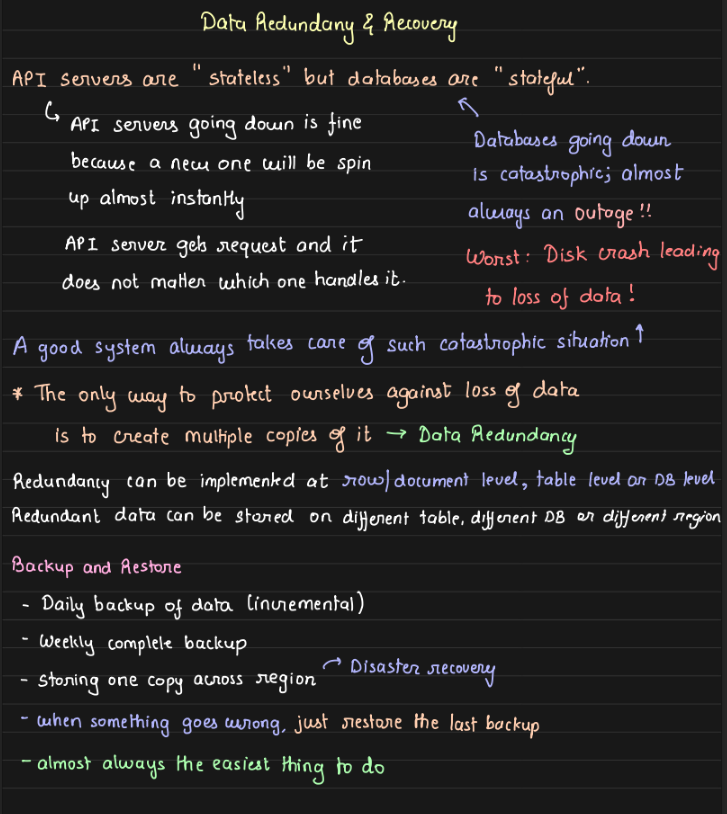 Data Redundany & Recovery
API servers are "stateless" but databases are "stateful".
API servers going down is fine
because a new one will be spin
up almost instantly
API server gets request and it
does not matter which one handles it.
Databases going down
is catastrophic; almost
always an outage!!
Worst: Disk crash leading
to loss of data!
A good system always takes care of such catastrophic situation
* The only way to protect ourselves against loss of data
is to create multiple copies of it → Data Redundancy
Redundancy can be implemented at row/document level, table level or DB level
Redundant data can be stored on different table, different DB or different region
Backup and Restore
- Daily backup of data (incremental)
- Weekly complete backup
- Storing one copy across region → Disaster recovery
- when something goes wrong, just restore the last backup
- almost always the easiest thing to do